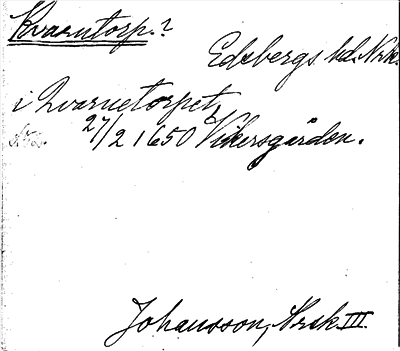 Kvarntorp.?
Edsbergs hd. Nrke.
i Qvarnetorpet,
27/2 1650 Vikersgården.
Johansson, Nrke III.